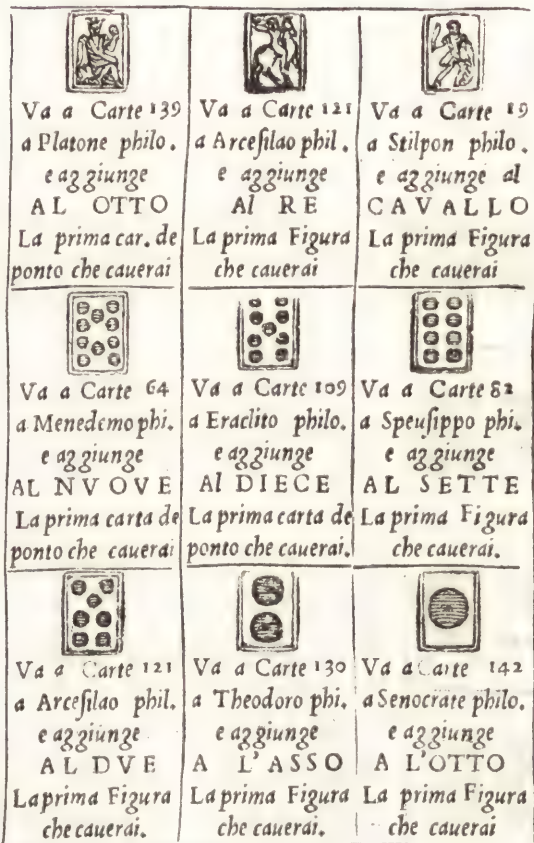 Va a Carte 139
a Platone philo.
e aggiunge
AL OTTO
La prima car. de
ponto che cauerai
Va a Carte 121
a Arceſilao phil.
e aggiunge
Al RE
La prima Figura
che cauerai
Va a Carte 19
a Stilpon philo.
e aggiunge al
CAVALLO
La prima Figura
che cauerai
Va a Carte 64
a Menedemo phi.
e aggiunge
AL NVOVE
La prima carta de
ponto che cauerai
Va a Carte 109
a Eraclito philo.
e aggiunge
Al DIECE
La prima carta de
ponto che cauerai.
Va a Carte 82
a Speuſippo phi.
e aggiunge
AL SETTE
La prima Figura
che cauerai.
Va a Carte 121
a Arceſilao phil.
e aggiunge
AL DVE
La prima Figura
che cauerai.
Va a Carte 130
a Theodoro phi.
e aggiunge
A L'ASSO
La prima Figura
che cauerai.
Va a Carte 142
a Senocrate philo.
e aggiunge
A L'OTTO
La prima Figura
che cauerai